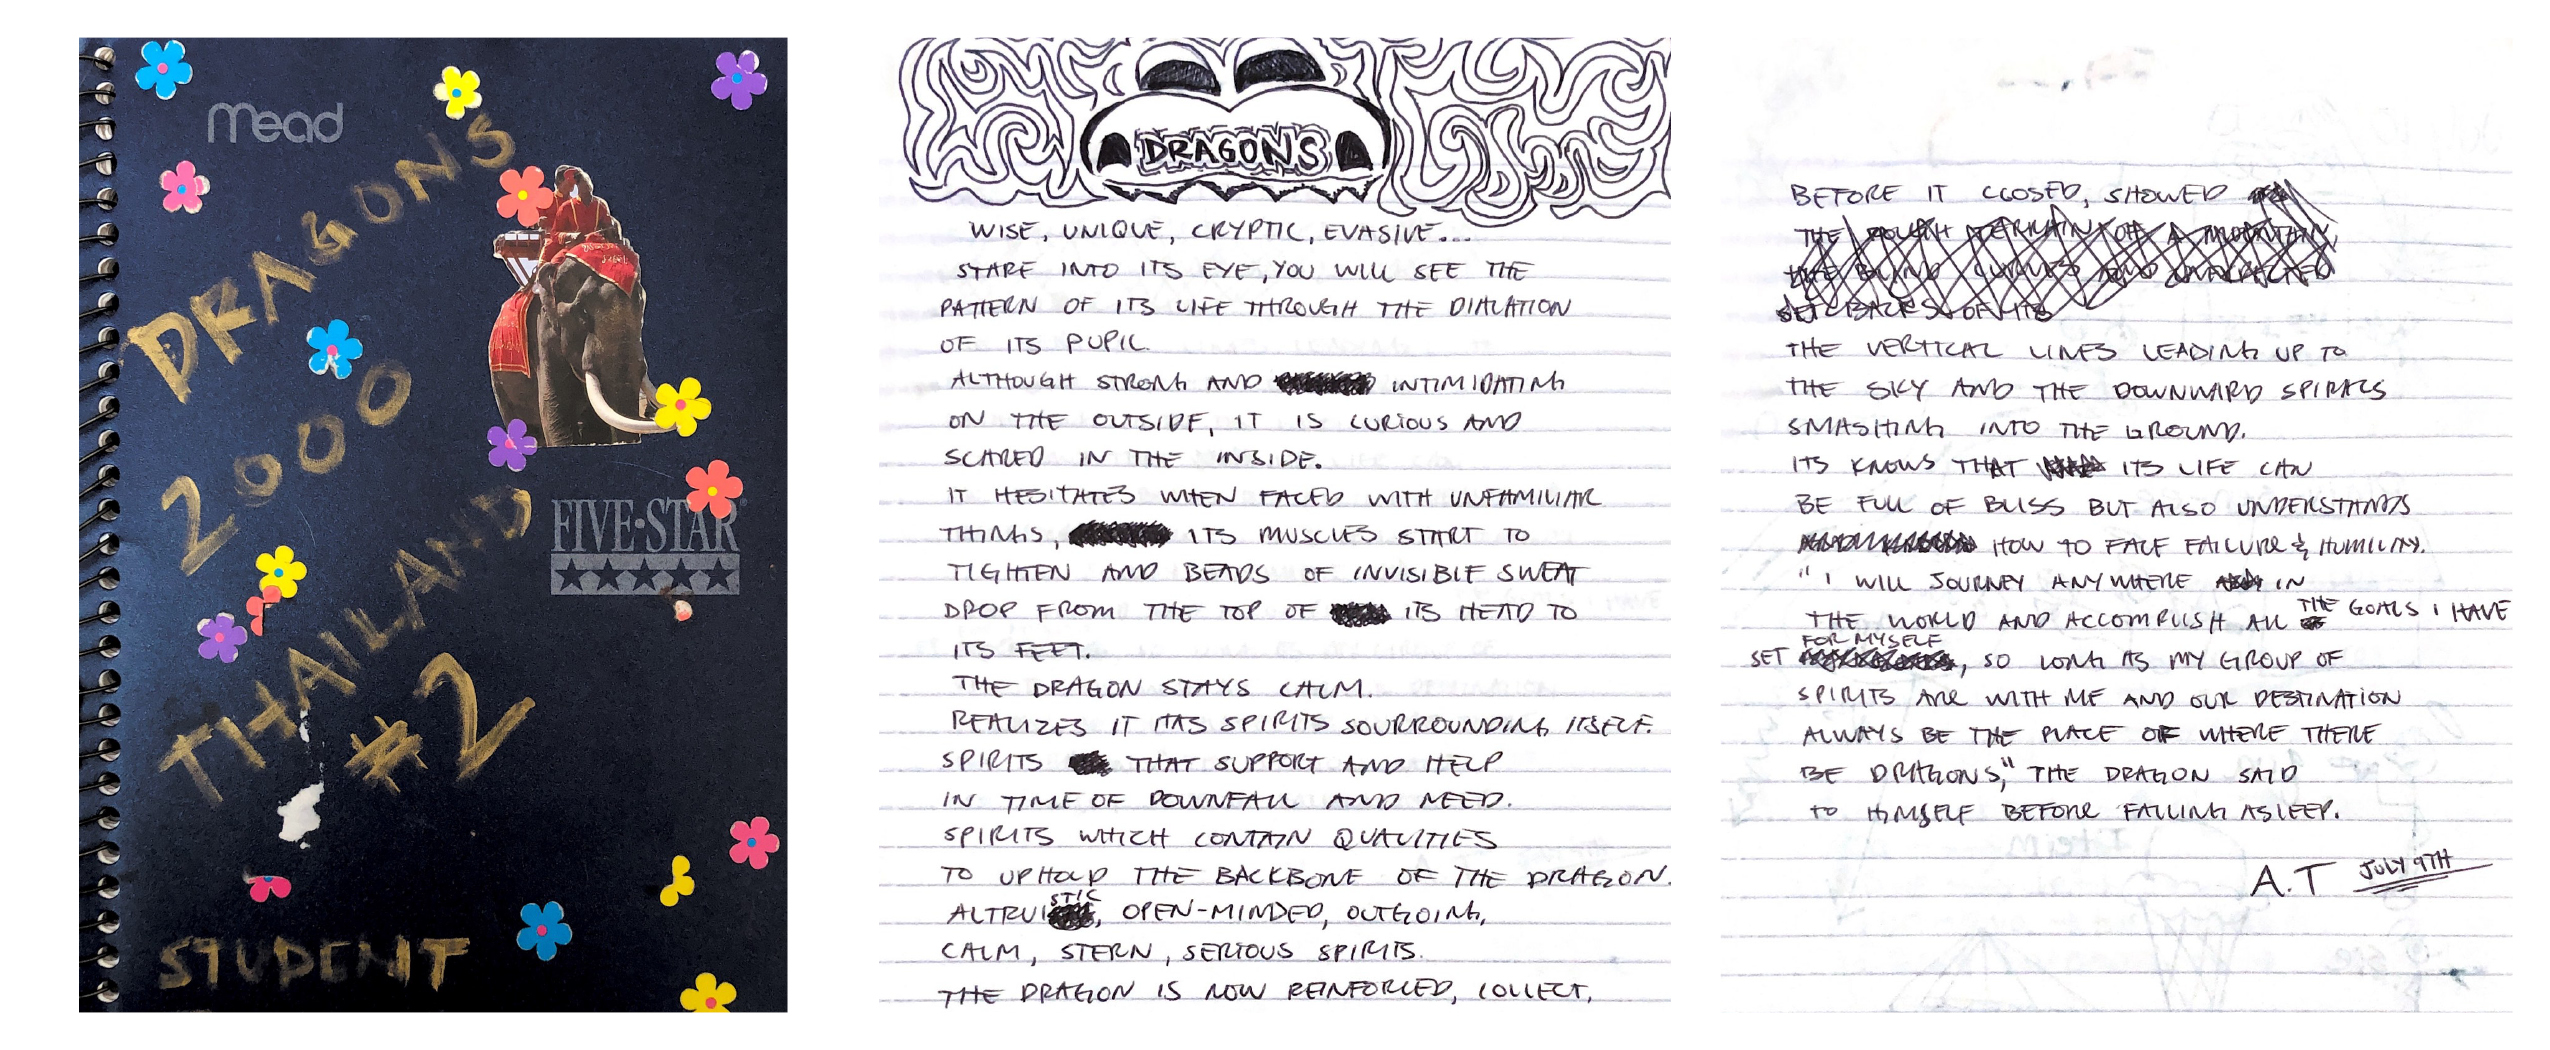 mead
DRAGONS
2000
THAILAND
#2
FIVE·STAR®
STUDENT
DRAGONS
WISE, UNIQUE, CRYPTIC, EVASIVE...
STARE INTO ITS EYE, YOU WILL SEE THE
PATTERN OF ITS LIFE THROUGH THE DIALATION
OF ITS PUPIL.
ALTHOUGH STRONG AND INTIMIDATING
ON THE OUTSIDE, IT IS CURIOUS AND
SCARED IN THE INSIDE.
IT HESITATES WHEN FACED WITH UNFAMILIAR
THINGS, ITS MUSCLES START TO
TIGHTEN AND BEADS OF INVISIBLE SWEAT
DROP FROM THE TOP OF ITS HEAD TO
ITS FEET.
THE DRAGON STAYS CALM.
REALIZES IT HAS SPIRITS SOURROUNDING ITSELF.
SPIRITS THAT SUPPORT AND HELP
IN TIME OF DOWNFALL AND NEED.
SPIRITS WHICH CONTAIN QUALITIES
TO UPHOLD THE BACKBONE OF THE DRAGON.
ALTRUISTIC, OPEN-MINDED, OUTGOING,
CALM, STERN, SERIOUS SPIRITS.
THE DRAGON IS NOW REINFORCED, COLLECT,
BEFORE IT CLOSED, SHOWED
THE ROUGH TERRAIN OF A MOUNTAIN,
THE BLIND CURVES AND UNEXPECTED
SET BACKS OF ITS
THE VERTICAL LINES LEADING UP TO
THE SKY AND THE DOWNWARD SPIRALS
SMASHING INTO THE GROUND.
ITS KNOWS THAT ITS LIFE CAN
BE FULL OF BLISS BUT ALSO UNDERSTANDS
HOW TO FACE FAILURE & HUMILITY.
"I WILL JOURNEY ANYWHERE IN
THE WORLD AND ACCOMPLISH ALL THE GOALS I HAVE
SET FOR MYSELF, SO LONG AS MY GROUP OF
SPIRITS ARE WITH ME AND OUR DESTINATION
ALWAYS BE THE PLACE OF WHERE THERE
BE DRAGONS," THE DRAGON SAID
TO HIMSELF BEFORE FALLING ASLEEP.
A.T JULY 9TH